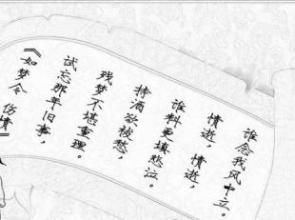 谁念我风中立。
情逝，情逝，
谁料更填愁泣。
持酒欲祓愁，
残梦不堪重理。
试忘那年旧事，
《如梦令 伤情》